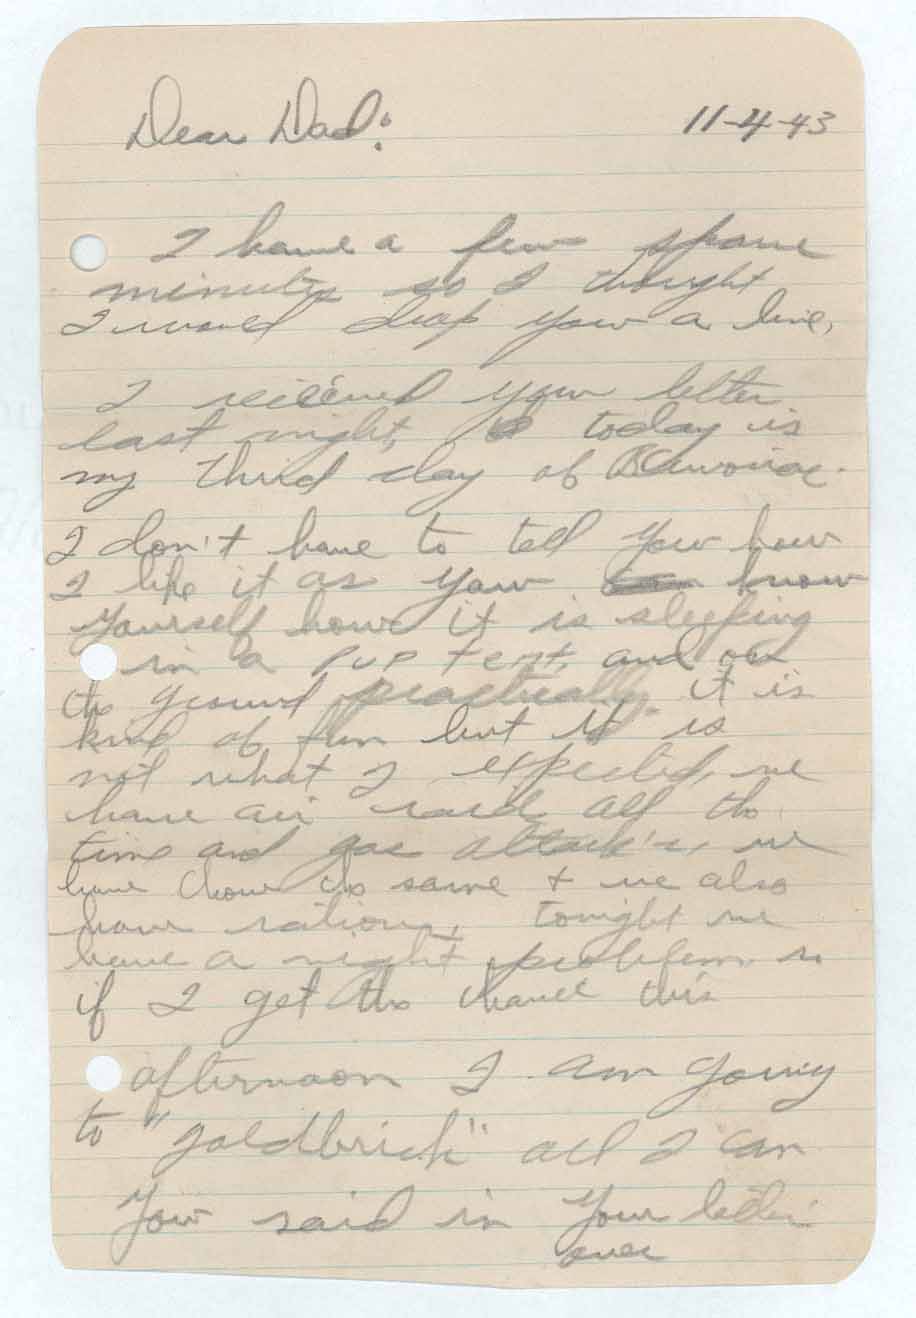 Dear Dad: 11-4-43
I have a few spare
minutes so I thought
I would drop you a line,
I received your letter
last night, today is
my third day of Bivouac.
I don't have to tell you how
I like it as you know
yourself how it is sleeping
in a pup tent, and on
the ground practically. it is
kind of fun but it is
not what I expected, we
have air raid all the
time and gas attack's, we
have chow the same + we also
have rations, tonight we
have a night problem so
if I get the chance this
afternoon I am going
to "goldbrick" all I can
You said in your letter
over